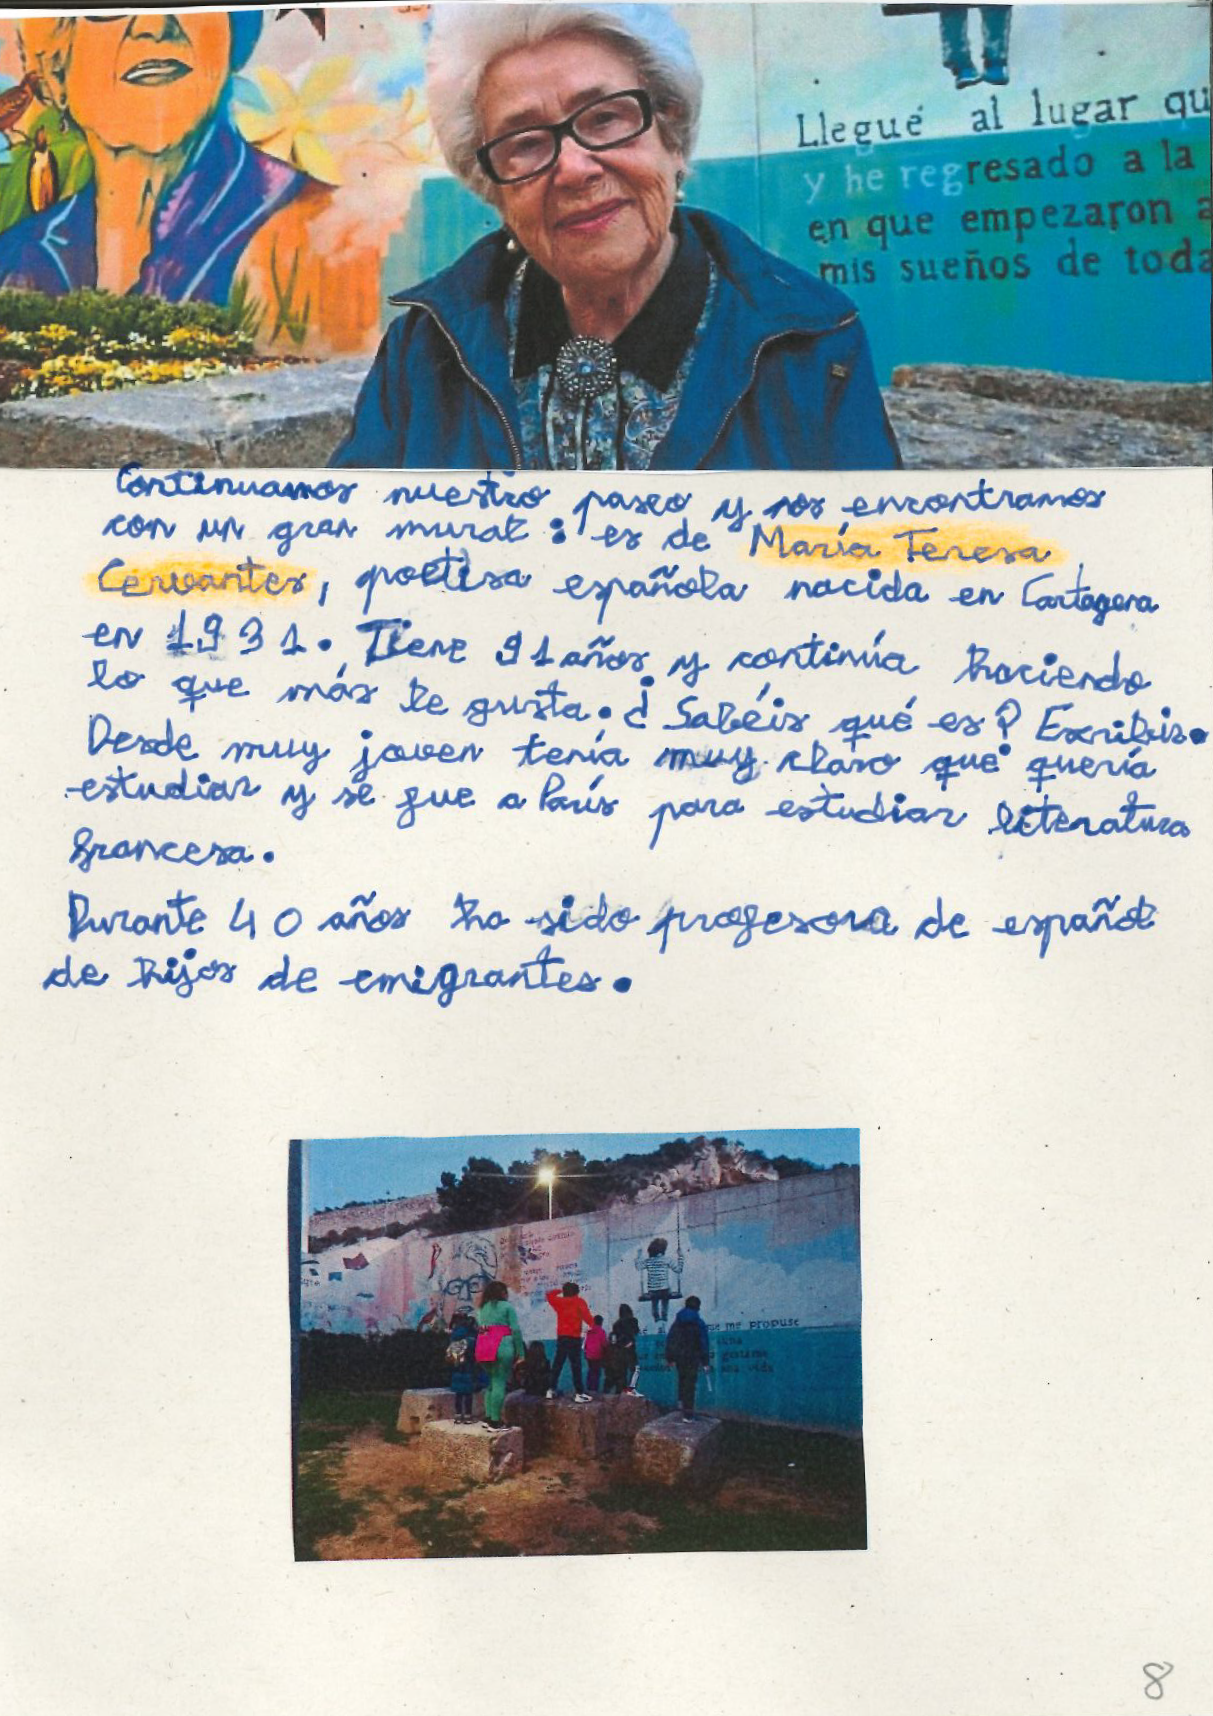 Llegué al lugar qu
y he regresado a la
en que empezaron a
mis sueños de toda
Continuamos nuestro paseo y nos encontramos
con un gran mural: es de María Teresa
Cervantes, poetisa española nacida en Cartagena
en 1931. Tiene 91 años y continúa haciendo
lo que más le gusta. ¿Sabéis qué es? Escribir.
Desde muy joven tenía muy claro que quería
estudiar y se fue a París para estudiar literatura
francesa.
Durante 40 años ha sido profesora de español
de hijos de emigrantes.
me propuse
una
vida
8